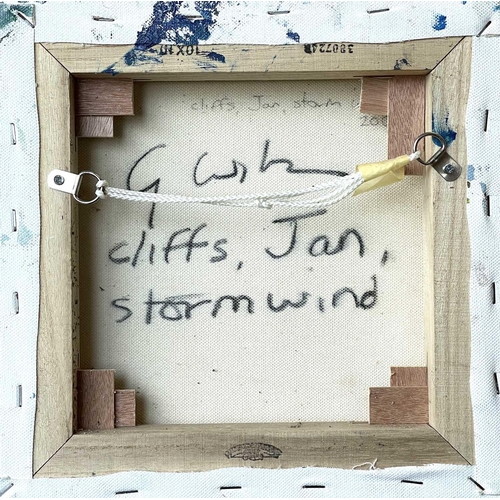 10X10
cliffs, Jan, storm
G
cliffs, Jan,
stormwind